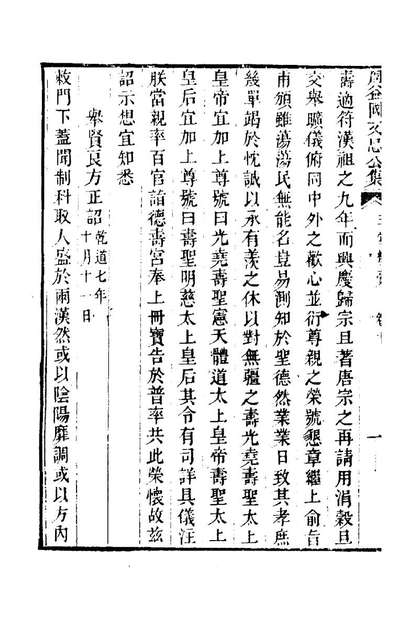 國文忠公集
壽適符漢祖之九年而興慶歸宗且著唐宗之再請用涓穀旦
交舉曠儀俯同中外之歡心並衍尊親之榮號懇章繼上俞旨
甫頒雖蕩蕩民無能名豈易測知於聖德然業業日致其孝庶
幾單竭於忱誠以承有羲之休以對無疆之壽光堯壽聖太上
皇帝宜加上尊號曰光堯壽聖憲天體道太上皇帝壽聖太上
皇后宜加上尊號曰壽聖明慈太上皇后其令有司詳具儀注
朕當親率百官詣德壽宮奉上冊寶告於普率共此榮懷故茲
詔示想宜知悉
舉賢良方正詔乾道七年十月十一日
敕門下蓋聞制科取人盛於兩漢然或以陰陽靡調或以方內